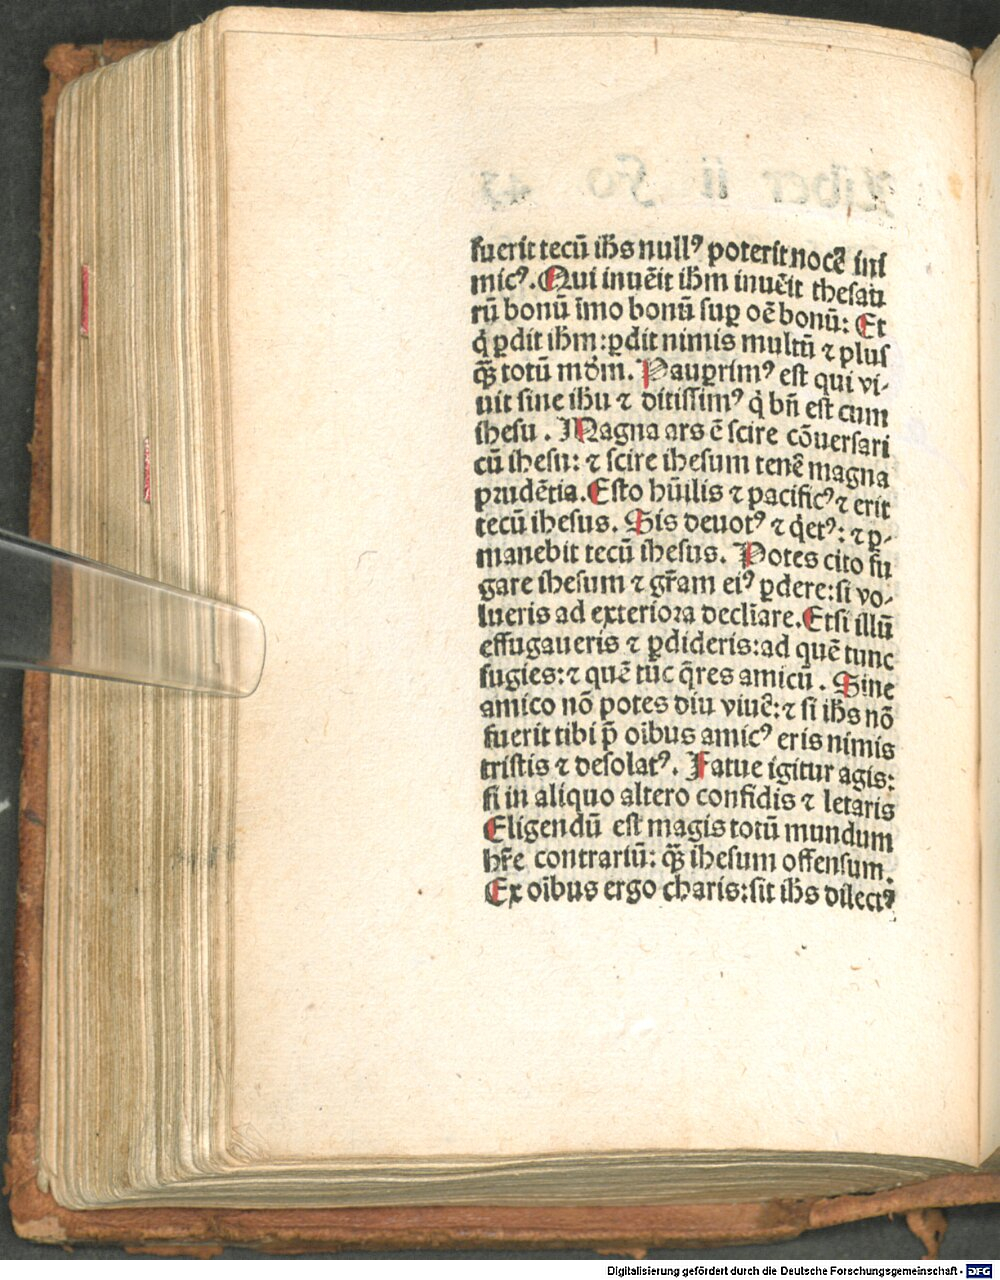 fuerit tecū ih̄s nullꝰ poterit nocē ini
micꝰ. Qui inuēit ih̄m inuēit thesau
rū bonū īmo bonū suꝑ oē bonū: Et
q̇ ꝑdit ih̄m: ꝑdit nimis multū ⁊ plus
q̄ꝫ totū mūdm. Pauꝑrimꝰ est qui vi-
uit sine ih̄u ⁊ ditissimꝰ q̇ bn̄ est cum
ihesu . Magna ars ē scire cōuersari
cū ihesu: ⁊ scire ihesum tenē magna
prudētia. Esto hūilis ⁊ pacificꝰ ⁊ erit
tecū ihesus. Sis deuotꝰ ⁊ q̇etꝰ: ⁊ ꝑ-
manebit tecū ihesus. Potes cito fu
gare ihesum ⁊ gr̄am eiꝰ ꝑdere: si vo-
lueris ad exteriora declīare. Etsi illū
effugaueris ⁊ ꝑdideris: ad quē tunc
fugies: ⁊ quē tūc q̄res amicū . Sine
amico nō potes diu viuē: ⁊ si ih̄s nō
fuerit tibi p̄ oībus amicꝰ eris nimis
tristis ⁊ desolatꝰ. Fatue igitur agis:
si in aliquo altero confidis ⁊ letaris
Eligendū est magis totū mundum
hr̄e contrariū: q̄ꝫ ihesum offensum.
Ex oībus ergo charis: sit ih̄s dilectꝰ
Digitalisierung gefördert durch die Deutsche Forschungsgemeinschaft - DFG